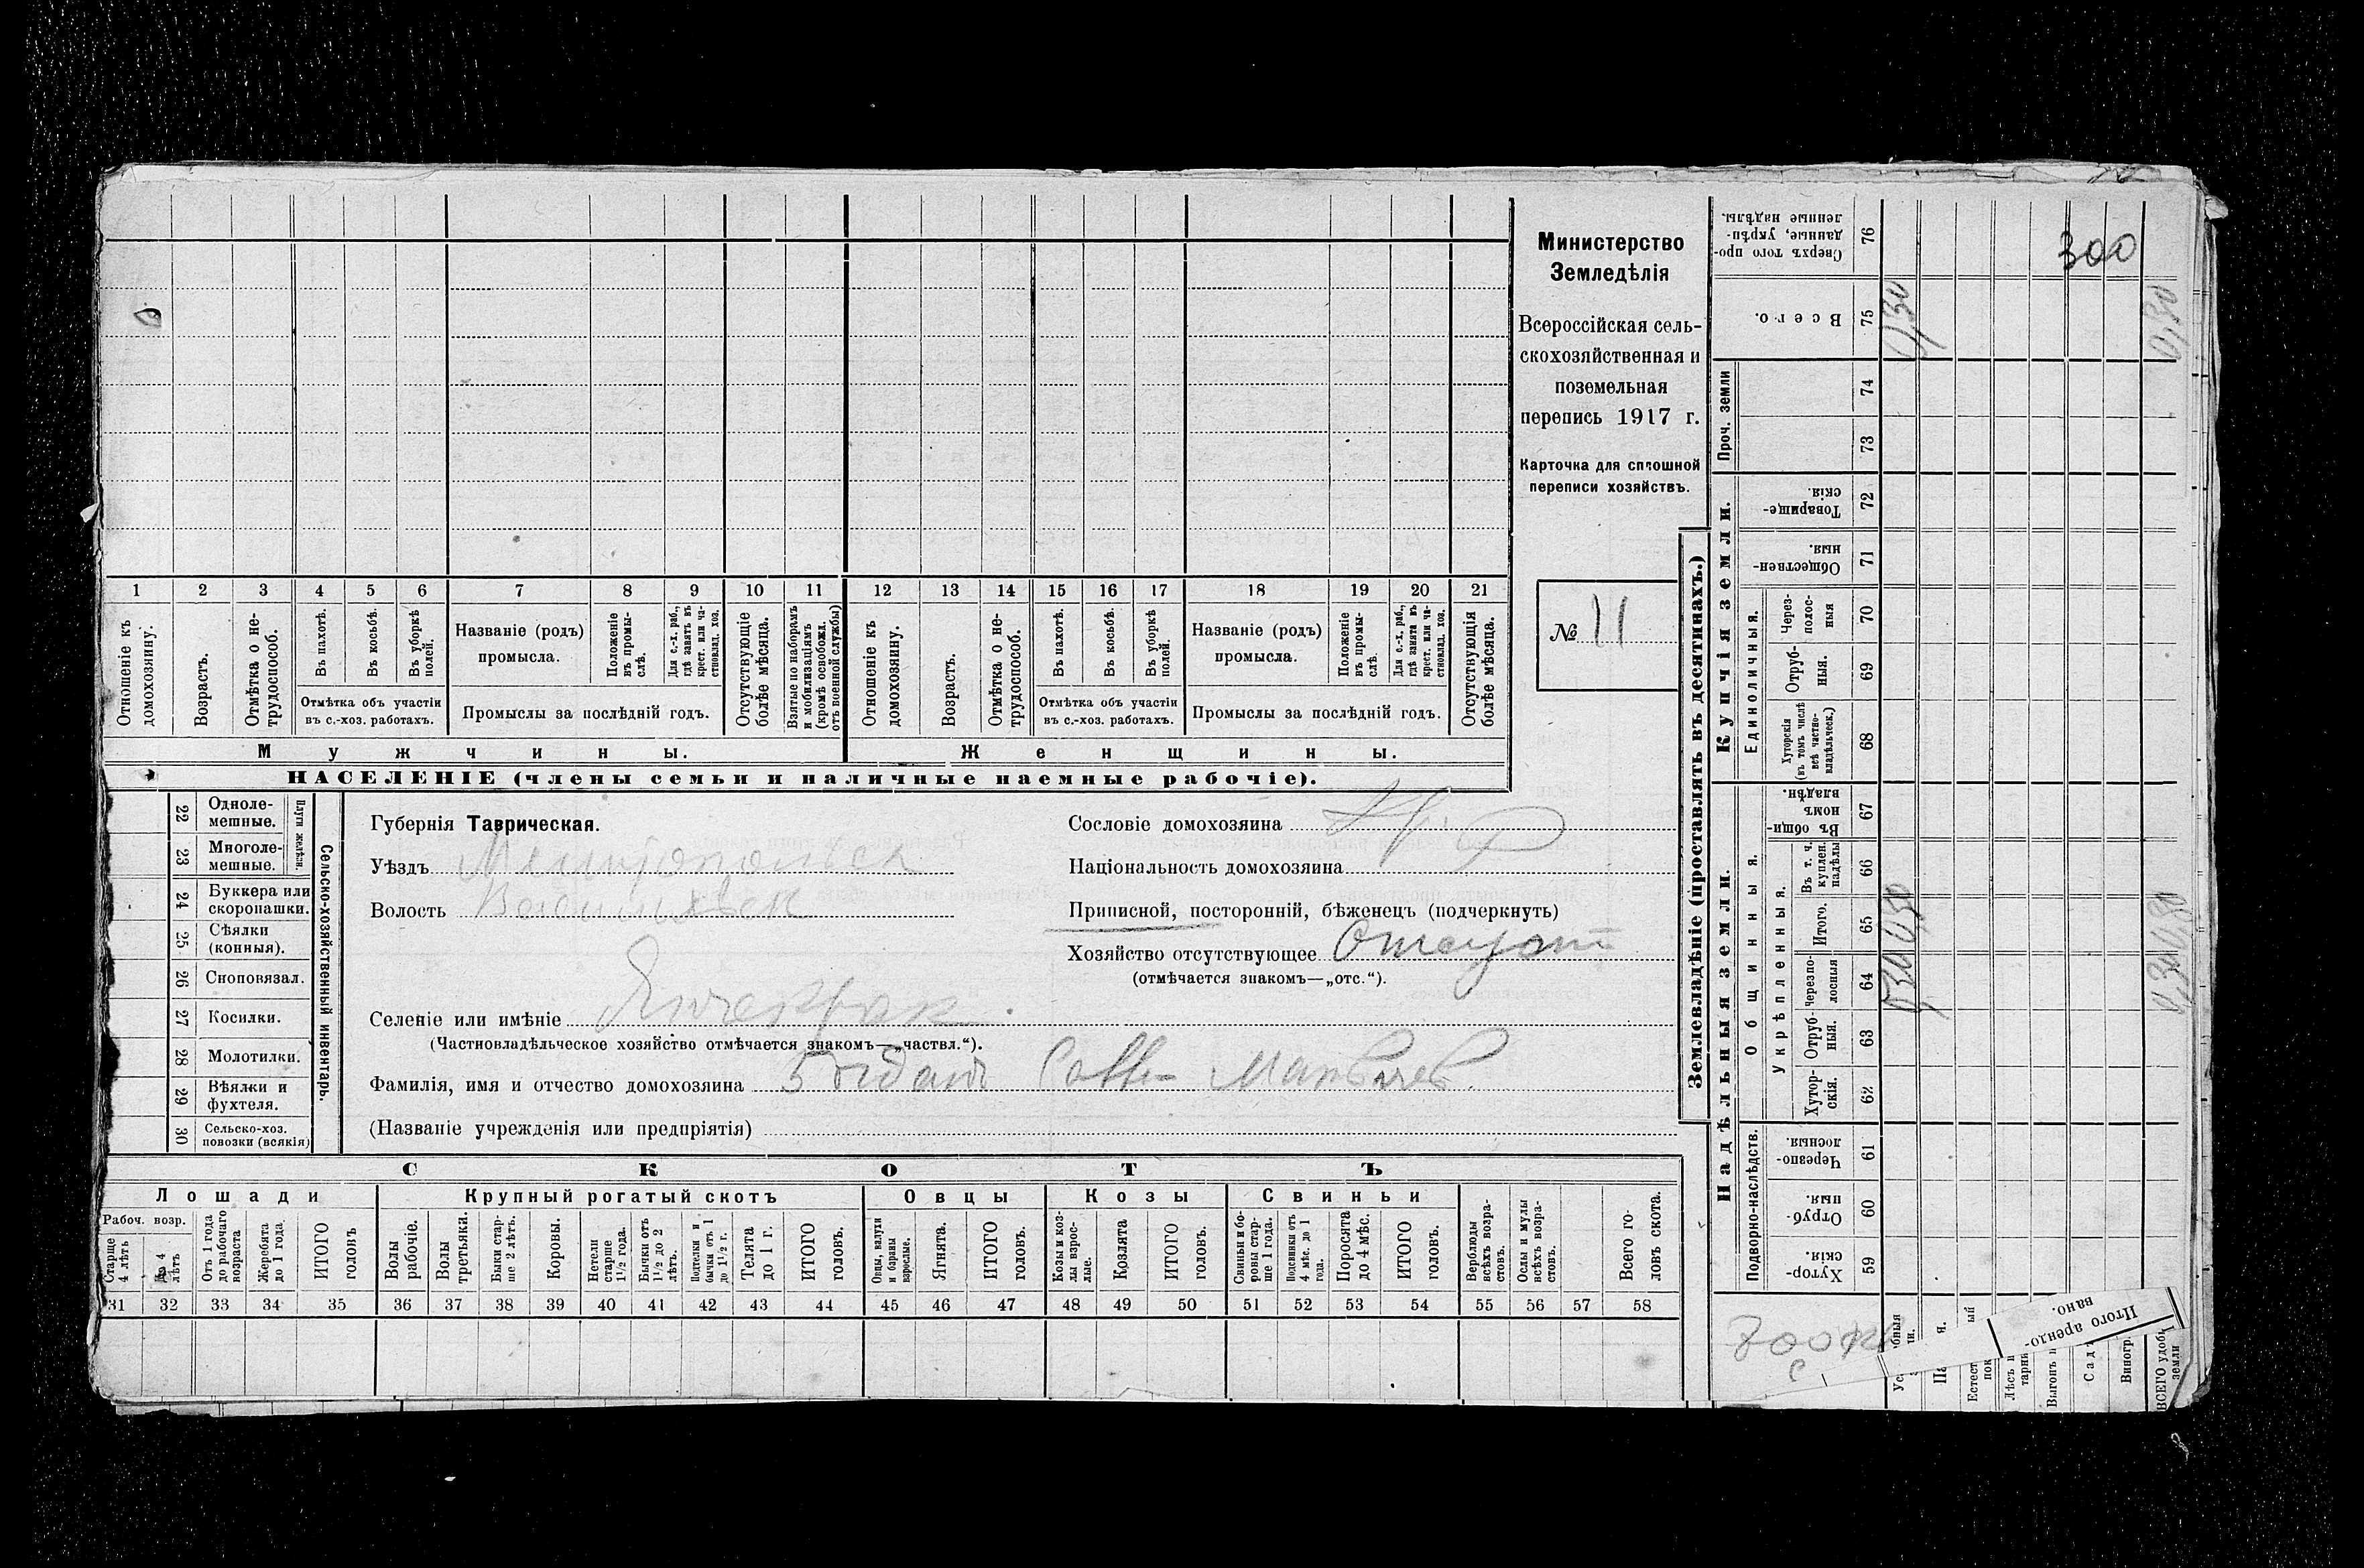 1 2 3 4 5 6 7 8 9 10 11 12 13 14 15 16 17 18 19 20 21
Отношеніе къ домохозяину.
Возрастъ.
Отмѣтка о не-
трудоспособ.
Въ пахотѣ.
Въ косьбѣ.
Въ уборкѣ
полей.
Отмѣтка объ участіи
въ с.-хоз. работахъ.
Названіе (родъ)
промысла.
Положеніе
въ промы-
слѣ.
Для с.-х. раб.,
гдѣ занятъ въ
крест. или ча-
стновлад. хоз.
Промыслы за послѣдній годъ.
Отсутствующіе
болѣе мѣсяца.
Взятые по наборамъ
и мобилизаціямъ
(кромѣ освобожд.
отъ военной службы)
Отношеніе къ
домохозяину.
Возрастъ.
Отмѣтка о не-
трудоспособ.
Въ пахотѣ.
Въ косьбѣ.
Въ уборкѣ
полей.
Отмѣтка объ участіи
въ с.-хоз. работахъ.
Названіе (родъ)
промысла.
Положеніе
въ промы-
слѣ.
Для с.-х. раб.,
гдѣ занята въ
крест. или ча-
стновлад. хоз.
Промыслы за послѣдній годъ.
Отсутствующія
болѣе мѣсяца.
Мужчины.
Женщины.
НАСЕЛЕНІЕ (члены семьи и наличные наемные рабочіе).
Министерство
Земледѣлія
Всероссійская сель-
скохозяйственная и
поземельная
перепись 1917 г.
Карточка для сплошной
переписи хозяйствъ.
№ 11
22 Одноле-
мешные.
23 Многоле-
мешные.
Плуги желѣзн.
24 Буккера или
скоропашки.
25 Сѣялки
(конныя).
26 Сноповязал.
27 Косилки.
28 Молотилки.
29 Вѣялки и
фухтеля.
30 Сельско-хоз.
повозки (всякія)
Сельско-хозяйственный инвентарь.
Губернія Таврическая.
Уѣздъ Мелитопольск
Волость Васильевск
Сословіе домохозяина Кр.
Національность домохозяина Р
Приписной, посторонній, бѣженецъ (подчеркнуть)
Хозяйство отсутствующее Отсутст
(отмѣчается знакомъ—„отс.“).
Селеніе или имѣніе Янчекрак
(Частновладѣльческое хозяйство отмѣчается знакомъ—„частвл.“).
Фамилія, имя и отчество домохозяина Богданъ
(Названіе учрежденія или предпріятія)
СКОТЪ
Лошади
Крупный рогатый скотъ
Овцы
Козы
Свиньи
Рабоч. возр.
Старще
4 лѣтъ
До 4
лѣтъ
Отъ 1 года
до рабочаго
возраста
Жеребята
до 1 года.
ИТОГО
головъ
Волы
рабочіе.
Волы
третьяки.
Быки стар-
ше 2 лѣтъ.
Коровы.
Нетели
старше
1½ года.
Бычки отъ
1½ до 2
лѣтъ.
Подтелки и
бычки отъ 1
до 1½ г.
Телята
до 1 г.
ИТОГО
головъ.
Овцы, валухи
и бараны
взрослые.
Ягнята.
ИТОГО
головъ.
Козы и коз-
лы взрос-
лые.
Козлята
ИТОГО
головъ.
Свиньи и бо-
ровы стар-
ше 1 года.
Подсвинки отъ
4 мѣс. до 1
года.
Поросята
до 4 мѣс.
ИТОГО
головъ.
Верблюды
всѣхъ возра-
стовъ.
Ослы и мулы
всѣхъ возра-
стовъ.
Всего го-
ловъ скота.
31 32 33 34 35 36 37 38 39 40 41 42 43 44 45 46 47 48 49 50 51 52 53 54 55 56 57 58
Землевладѣніе (проставлять въ десятинахъ.)
Надѣльныя земли.
Купчія земли.
Проч. земли
Подворно-наслѣдств.
Общинныя.
Укрѣпленныя.
Единоличныя.
Сверхъ того про-
данные, укрѣп-
ленные надѣлы. 76
Всего. 75
74
73
Товарище-
скія. 72
Обществен-
ныя. 71
Через-
полос-
ныя 70
Отруб-
ныя. 69
Хуторскія
(въ томъ числѣ
всѣ частно-
владѣльческ.) 68
Въ общи-
номъ
владѣн. 67
Въ т. ч.
куплен.
надѣлы 66
Итого. 65
Черезпо-
лосныя 64
Отруб-
ныя. 63
Хутор-
скія. 62
Черезпо-
лосныя. 61
Отруб-
ныя. 60
Хутор-
скія. 59
300
0,30
0,30
0,30 0,30
0,30 0,30
Итого арендо-
вано.
Выгонъ
Виногр.
ВСЕГО удоб
земли